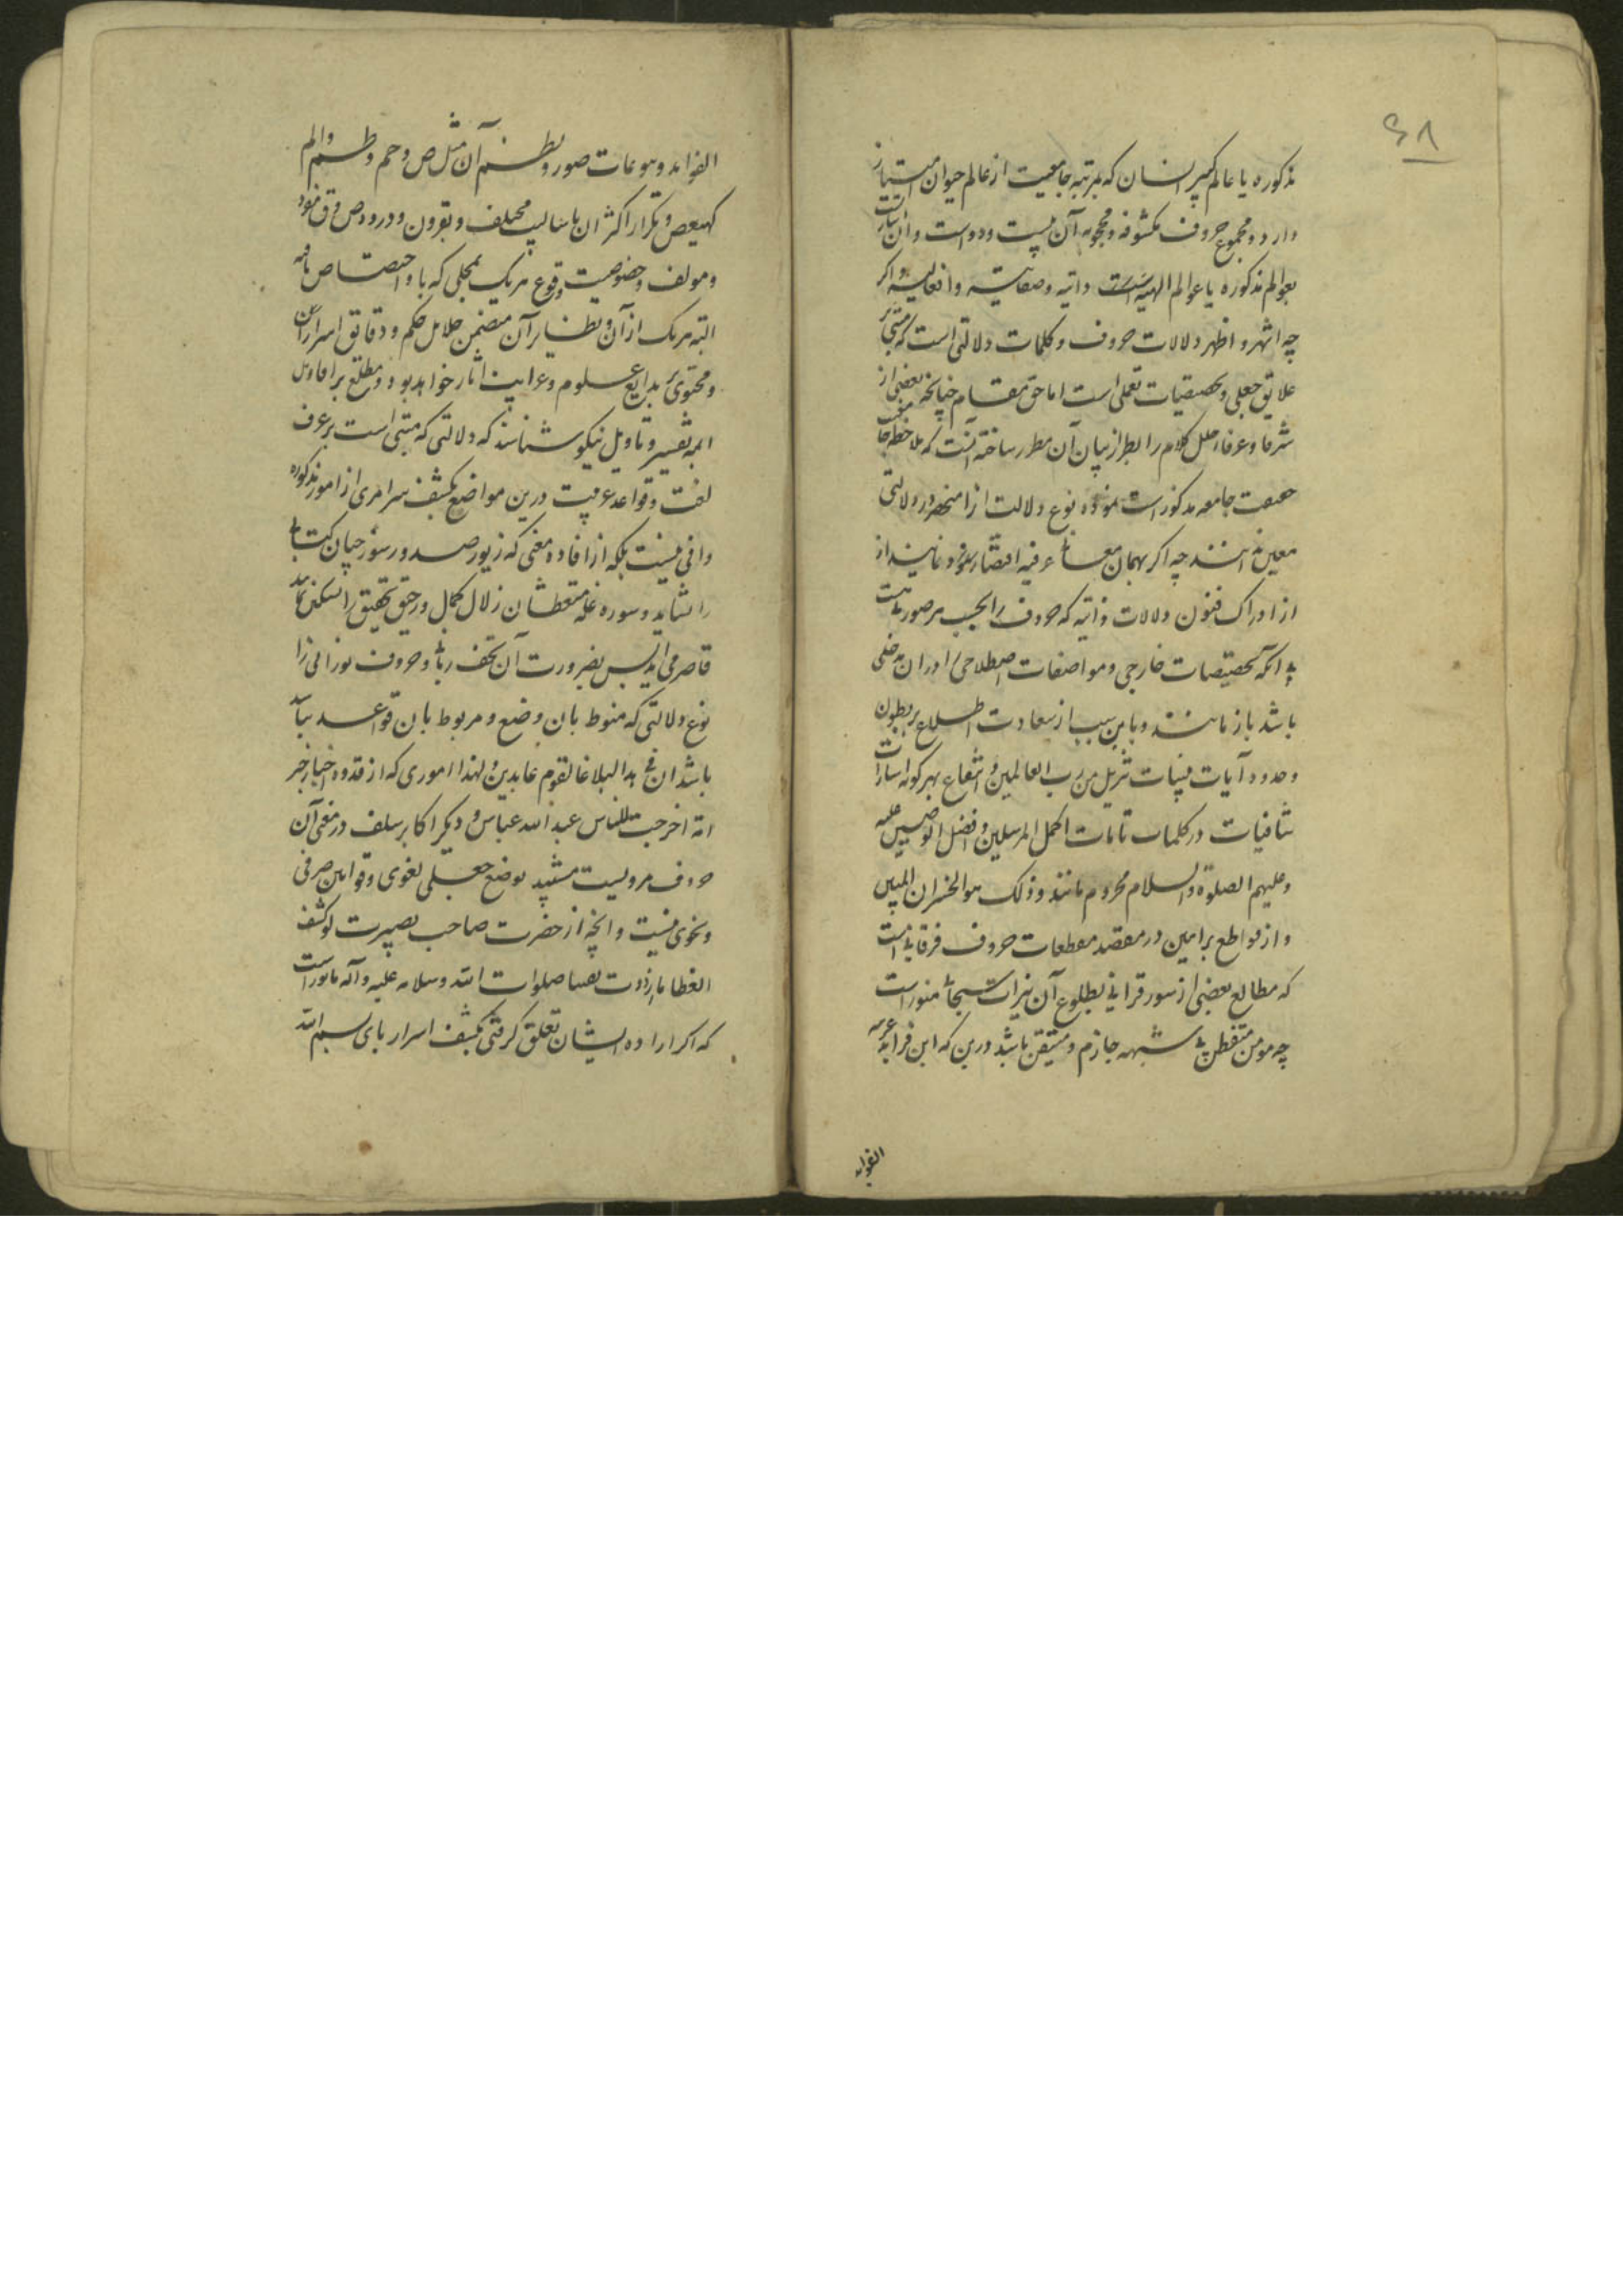 ۶۸
مذکوره یا عالم کبیر انسان که بمرتبه جامعیت از عالم حیوان امتیاز
دارد و مجموع حروف مکشوفه و محجوبه آن بیست و دو است و آن
بعوالم مذکوره یا عوالم الهیه است ذاتیه وصفاتیه وافعالیه
چه اشهر و اظهر دلالات حروف و کلمات دلالتی است که مبتنی بر
علایق جعلی و تخصیصات تعملی است اما حق مقام چنانچه بعضی از
شرفا و عرفا حلل کلام را بطراز بیان آن مطرز ساخته آنست که ملاحظه
حقیقت جامعه مذکور است نموده نوع دلالت از آن منحصر در دلالتی
معین ندانند چه اگر بهمان عرفیه اقتصار
از ادراک فنون دلالات ذاتیه که حروف را بحسب هر صورت هست
بی آنکه تخصیصات خارجی و مواضعات اصطلاحی را در آن مدخلی
باشد باز مانند و باین سبب از سعادت اطلاع بر بطون
و حدود آیات بینات تنزیل من رب العالمین و انتفاع بهر گونه اشارات
شافیات در کلمات تامات اکمل المرسلین و افضل الوصیین علیه
وعلیهم الصلوة والسلام محروم مانند وذلک هو الخسران المبین
و از قواطع براهین در مقصد مقطعات حروف فرقانی است
که مطالع بعضی از سور قرآنی بطلوع آن نیرات منور است
چه مومن متفطن بی شبهه جازم و متیقن باشد درین که این
الفواید
الفواید وهوعات صور و نظم آن مثل ص و حم و طسم و الم
کهیعص و تکرار اکثر آن باسالیب مختلف و بقرون و درود ص و ق
ومولف وخصوصیت وقوع هریک بمحلی که باو اختصاص یافته
البته هریک از آن و نظایر آن متضمن جلایل حکم و دقایق اسرار
ومحتوی بر بدایع علوم و غرایب آثار خواهد بود و مطلع بر اقاویل
ایمه تفسیر و تاویل نیکو شناسند که دلالتی که مبتنی است بر عرف
لغت و قواعد عربیت درین مواضع بکشف سرامری از امور مذکوره
وافی نیست بلکه از افاده معنی که زیور صدور
را شاید وسوره غله متعطشان زلال کمال و رحیق تحقیق را تسکین
قاصر می آید پس بضرورت آن تحف ربانی و حروف نورانی را
نوع دلالتی که منوط بان وضع و مربوط بان قواعد نباشد
باشد ان فی هذا لبلاغا لقوم عابدین ولهذا اموری که از قدوه اخیار خیر
امة اخرجت للناس عبد الله عباس و دیگر اکابر سلف در معنی آن
حروف مرویست مشید بوضع جعلی لغوی وقوانین صرفی
ونحوی نیست وآنچه از حضرت صاحب بصیرت لو کشف
الغطا ما ازددت یقینا صلوات الله وسلامه علیه وآله ماثور است
که اگر اراده ایشان تعلق گرفتی بکشف اسرار بای بسم الله